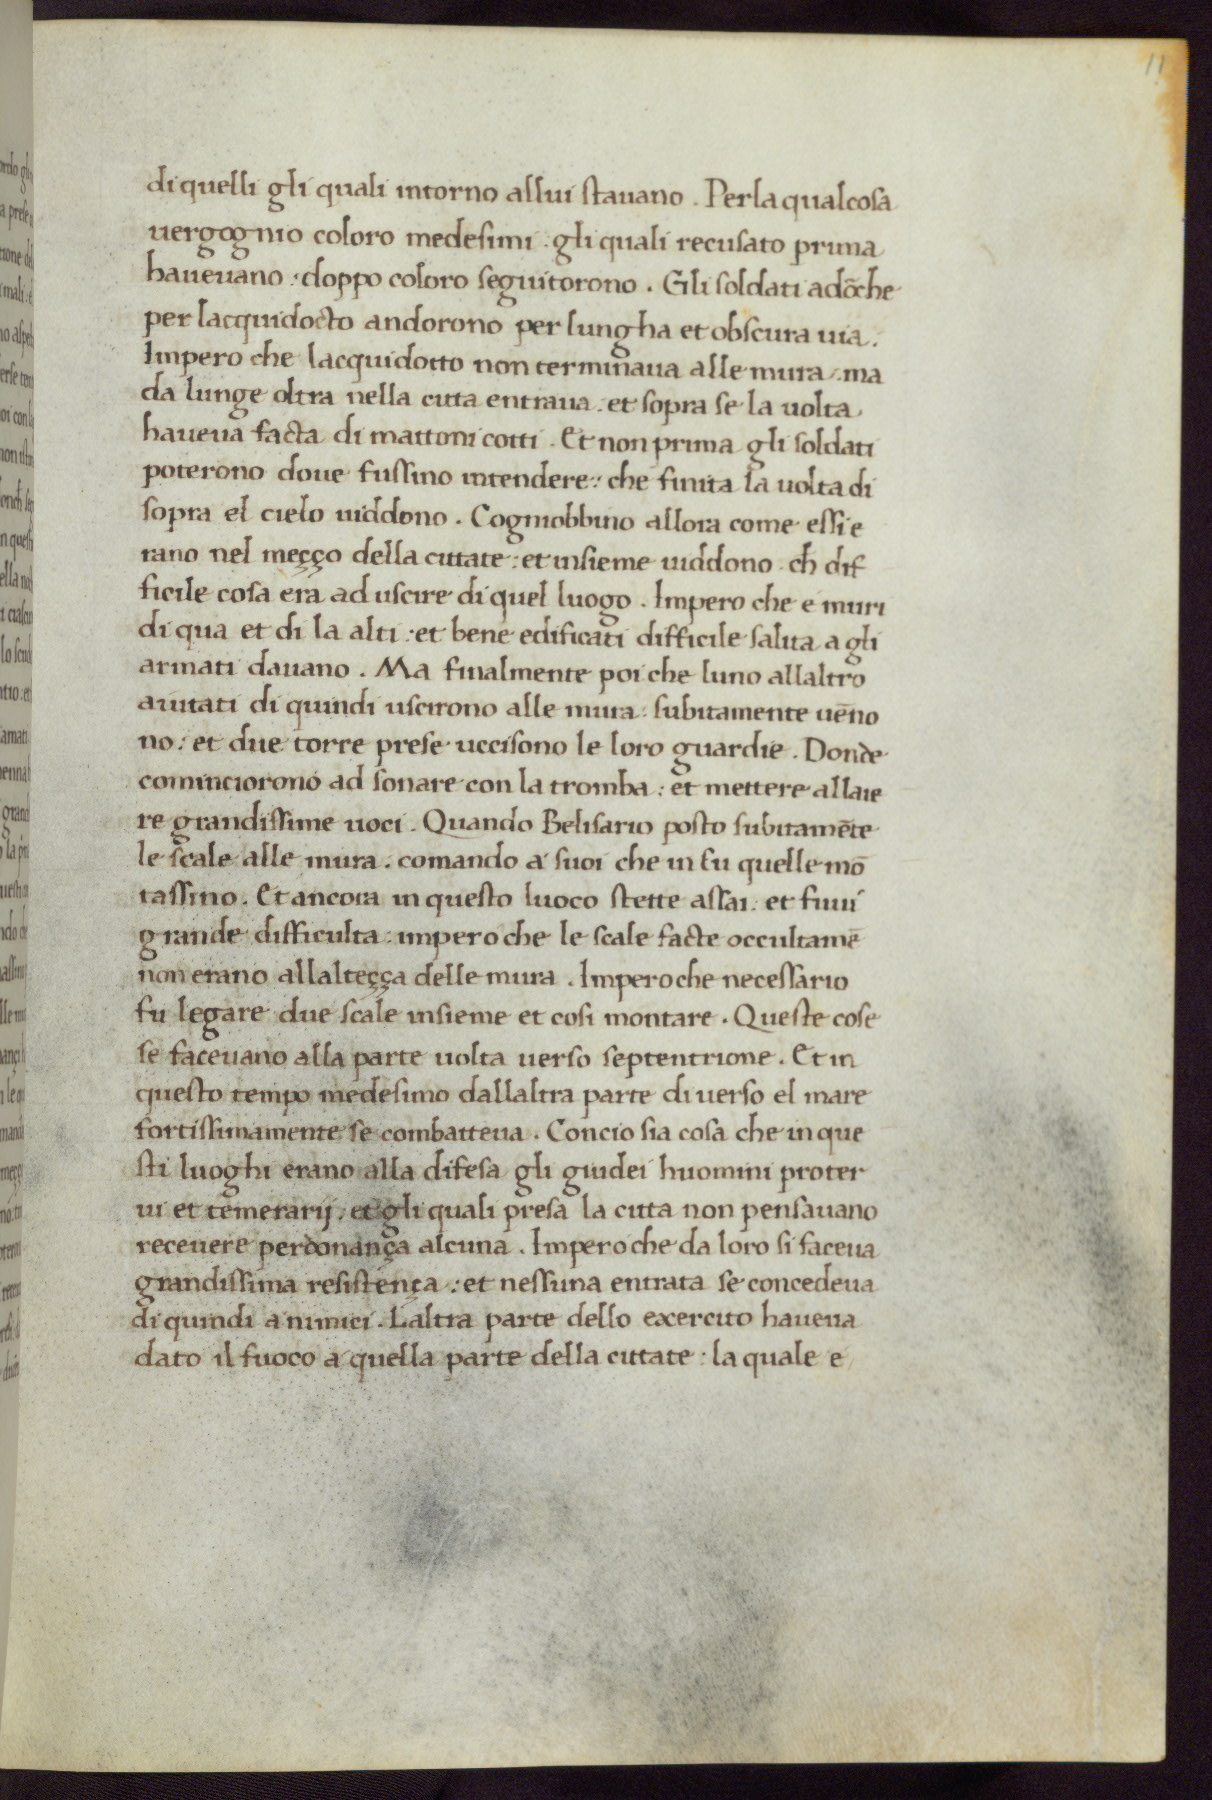 11
di quelli gli quali intorno allui stauano . Perla qualcosa
uergognio coloro medesimi : gli quali recusato prima
haueuano : doppo coloro seguitorono . Gli soldati adōche
per lacquidocto andorono per lungha et obscura uia .
Impero che lacquidotto non terminaua alle mura : ma
da lunge oltra nella citta entraua : et sopra se la uolta
haueua facta di mattoni cotti . Et non prima gli soldati
poterono doue fussino intendere : che finita la uolta di
sopra el cielo uiddono . Cogniobbino allora come essi e
rano nel meçço della cittate : et insieme uiddono ch̄ dif
ficile cosa era ad uscire di quel luogo . Impero che e muri
di qua et di la alti : et bene edificati difficile salita a gli
armati dauano . Ma finalmente poi che luno allaltro
aiutati di quindi uscirono alle mura : subitamente uēno
no : et due torre prese uccisono le loro guardie . Donde
cominciorono ad sonare con la tromba : et mettere allaie
re grandissime uoci . Quando Belisario posto subitamēte
le scale alle mura . comando a suoi che in su quelle mō
tassino . Et ancora in questo luoco stette assai . et fuui
grande difficulta : impero che le scale facte occultamē
non erano allalteçça delle mura . Impero che necessario
fu legare due scale insieme et cosi montare . Queste cose
se faceuano alla parte uolta uerso septentrione . Et in
questo tempo medesimo dallaltra parte di uerso el mare
fortissimamente se combatteua . Concio sia cosa che in que
sti luoghi erano alla difesa gli giudei huomini proter
ui et temerarij : et gli quali presa la citta non pensauano
receuere perdonança alcuna . Impero che da loro si faceua
grandissima resistença : et nessuna entrata se concedeua
di quindi a nimici . Laltra parte dello exercito haueua
dato il fuoco a quella parte della cittate : la quale e